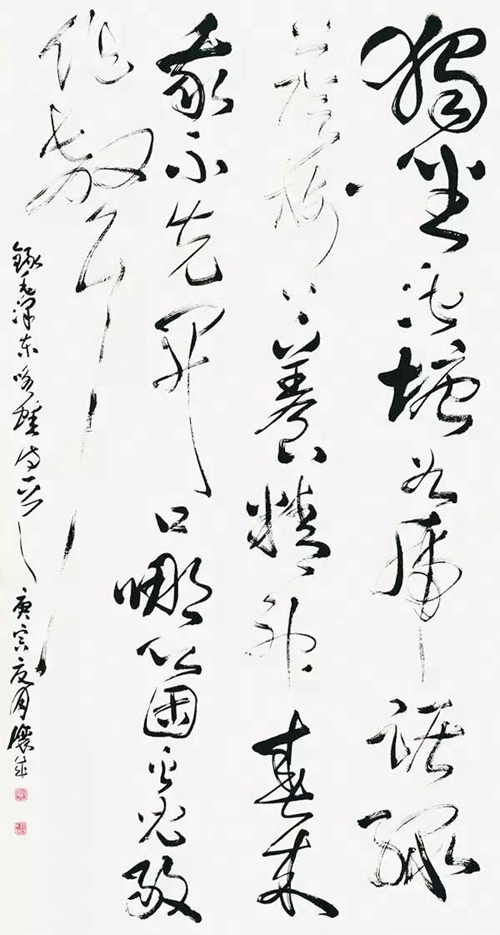 獨坐池塘如虎踞綠
蔭樹下養精神春來
我不先開口哪箇虫兒敢
作聲
錄毛澤东咏蛙诗 庚寅夏月